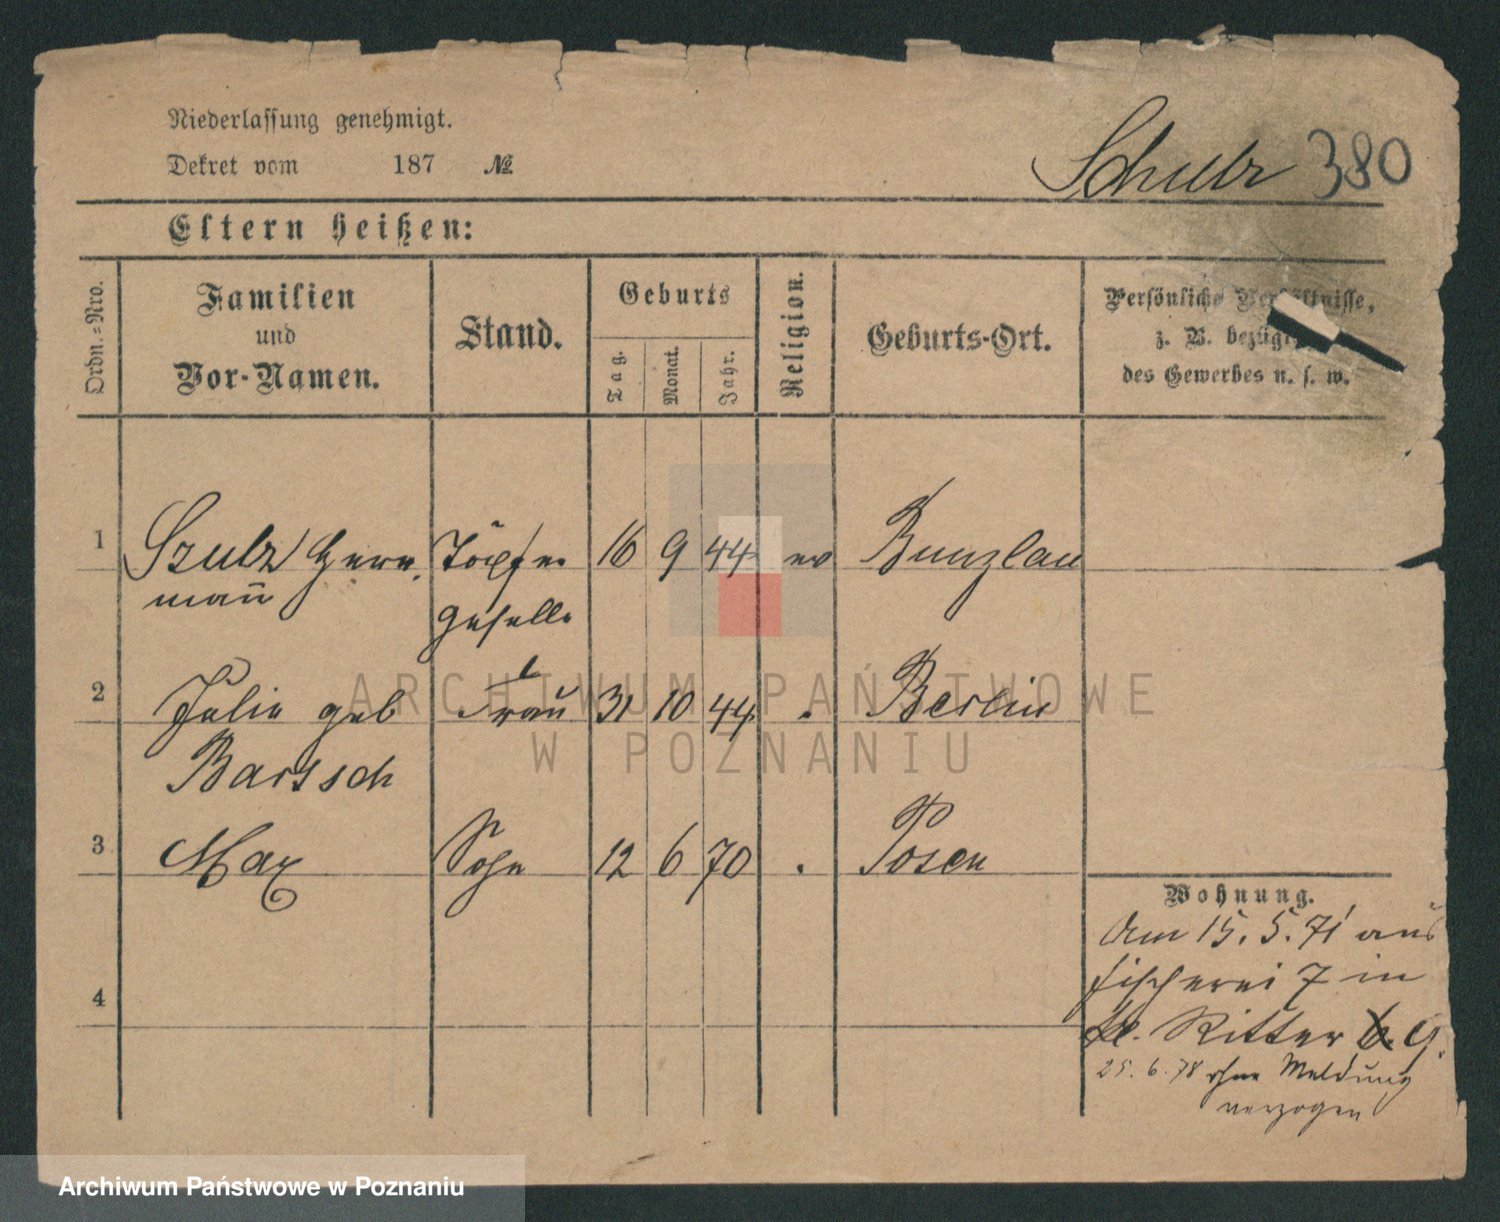 Niederlassung genehmigt.
Dekret vom 187 №
Schulz 380
Eltern heißen:
Ordn.-Nro.
Familien
und
Vor-Namen.
Stand.
Geburts
Tag.
Monat.
Jahr.
Religion.
Geburts-Ort.
Persönliche Verhältnisse,
z. B. bezügl.
des Gewerbes u. s. w.
1 Szulz Herr Töpfer 16 9 44 ev Bunzlau
mañ Geselle
2 Julie geb Frau 31 10 44 . Berlin
Bartsch
3 Max Sohn 12 6 70 . Posen
Wohnung.
Am 15. 5. 71 aus
Fischerei 7 in
kl. Ritter 6. 9.
25. 6. 78 ohne Meldung
verzogen
4
ARCHIWUM PAŃSTWOWE
W POZNANIU
Archiwum Państwowe w Poznaniu